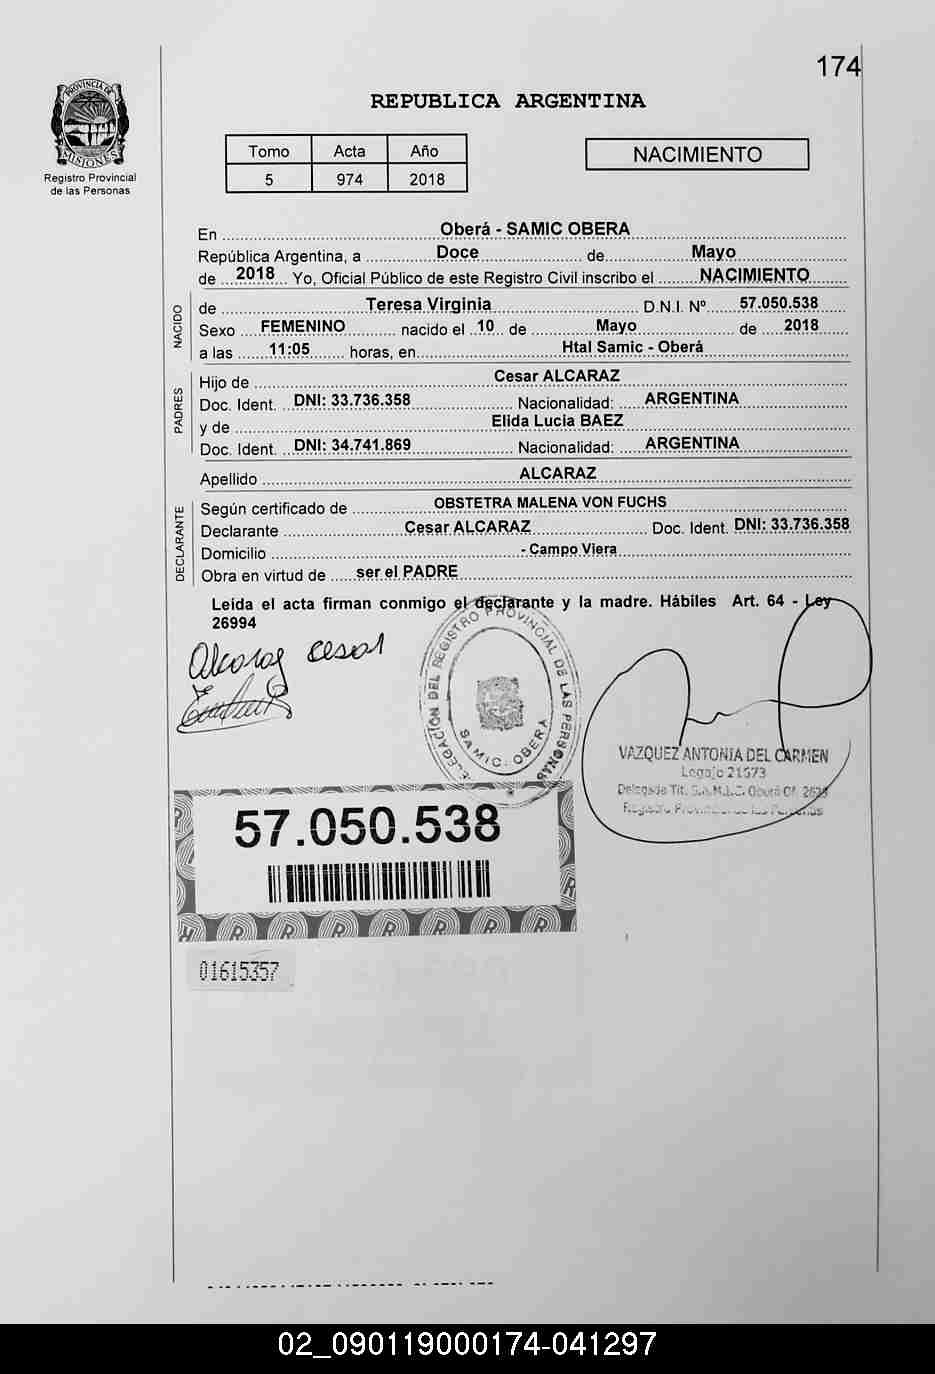 174
PROVINCIA DE
MISIONES
Registro Provincial
de las Personas
REPUBLICA ARGENTINA
Tomo Acta Año
5 974 2018
NACIMIENTO
En Oberá - SAMIC OBERA
República Argentina, a Doce de Mayo
de 2018 Yo, Oficial Público de este Registro Civil inscribo el NACIMIENTO
NACIDO
de Teresa Virginia D.N.I. Nº 57.050.538
Sexo FEMENINO nacido el 10 de Mayo de 2018
a las 11:05 horas, en Htal Samic - Oberá
PADRES
Hijo de Cesar ALCARAZ
Doc. Ident. DNI: 33.736.358 Nacionalidad: ARGENTINA
y de Elida Lucia BAEZ
Doc. Ident. DNI: 34.741.869 Nacionalidad: ARGENTINA
Apellido ALCARAZ
DECLARANTE
Según certificado de OBSTETRA MALENA VON FUCHS
Declarante Cesar ALCARAZ Doc. Ident. DNI: 33.736.358
Domicilio - Campo Viera
Obra en virtud de ser el PADRE
Leida el acta firman conmigo el declarante y la madre. Hábiles Art. 64 - Ley
26994
Alcaraz cesar
DELEGACIÓN DEL REGISTRO PROVINCIAL DE LAS PERSONAS
SAMIC. OBERA
VAZQUEZ ANTONIA DEL CARMEN
Legajo 21573
Delegada Tit. S.A.M.I.C. Oberá Of. 2635
Registro Provincial de las Personas
57.050.538
01615357
02_090119000174-041297